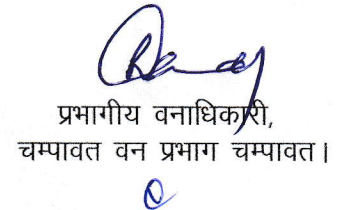 प्रभागीय वनाधिकारी,
चम्पावत वन प्रभाग चम्पावत।